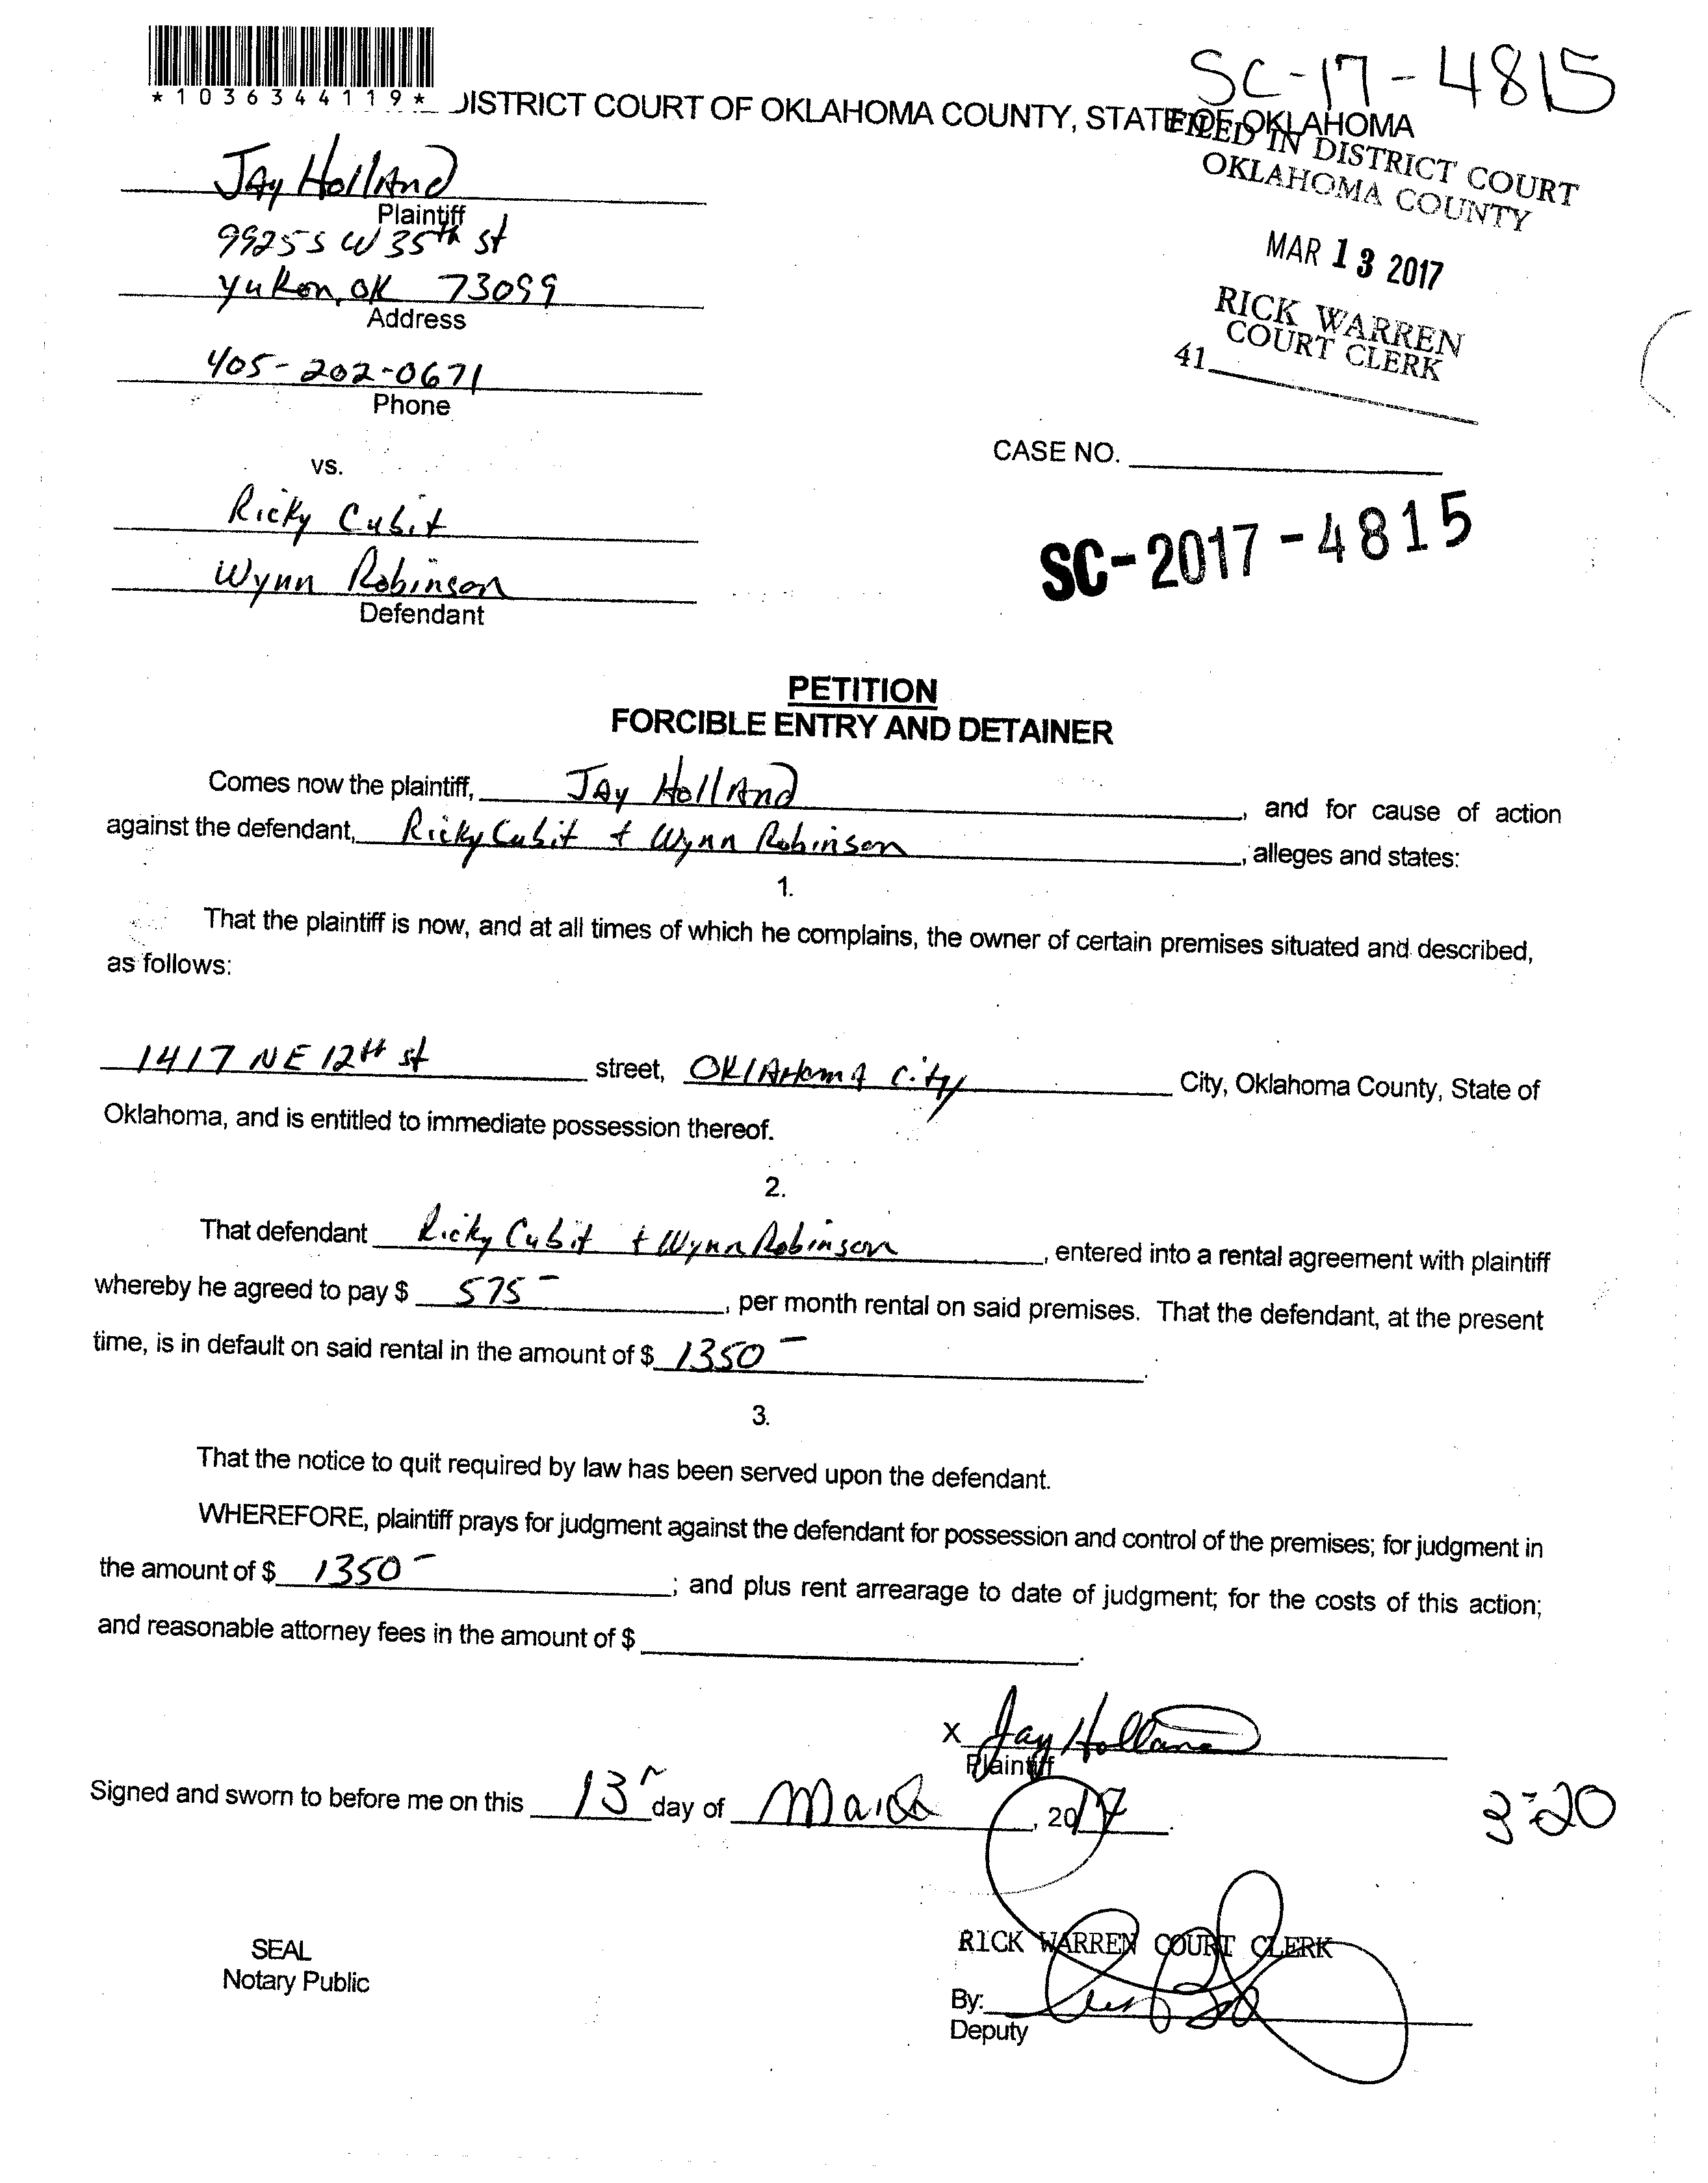 SC-17-4815
*1036344119*
DISTRICT COURT OF OKLAHOMA COUNTY, STATE OF OKLAHOMA
FILED IN DISTRICT COURT
OKLAHOMA COUNTY
MAR 13 2017
RICK WARREN
COURT CLERK
41
Jay Holland
Plaintiff
9925 SW 35th st
Yukon, OK 73099
Address
405-202-0671
Phone
CASE NO.
SC-2017-4815
vs.
Ricky Cubit
Wynn Robinson
Defendant
PETITION
FORCIBLE ENTRY AND DETAINER
Comes now the plaintiff, Jay Holland, and for cause of action
against the defendant, Ricky Cubit + Wynn Robinson, alleges and states:
1.
That the plaintiff is now, and at all times of which he complains, the owner of certain premises situated and described,
as follows:
1417 NE 12th st street, Oklahoma City City, Oklahoma County, State of
Oklahoma, and is entitled to immediate possession thereof.
2.
That defendant Ricky Cubit + Wynn Robinson, entered into a rental agreement with plaintiff
whereby he agreed to pay $ 575-, per month rental on said premises. That the defendant, at the present
time, is in default on said rental in the amount of $ 1350-.
3.
That the notice to quit required by law has been served upon the defendant.
WHEREFORE, plaintiff prays for judgment against the defendant for possession and control of the premises; for judgment in
the amount of $ 1350-; and plus rent arrearage to date of judgment; for the costs of this action;
and reasonable attorney fees in the amount of $.
X Jay Holland
Plaintiff
Signed and sworn to before me on this 13 day of March, 2017.
3-20
SEAL
Notary Public
RICK WARREN COURT CLERK
By:
Deputy